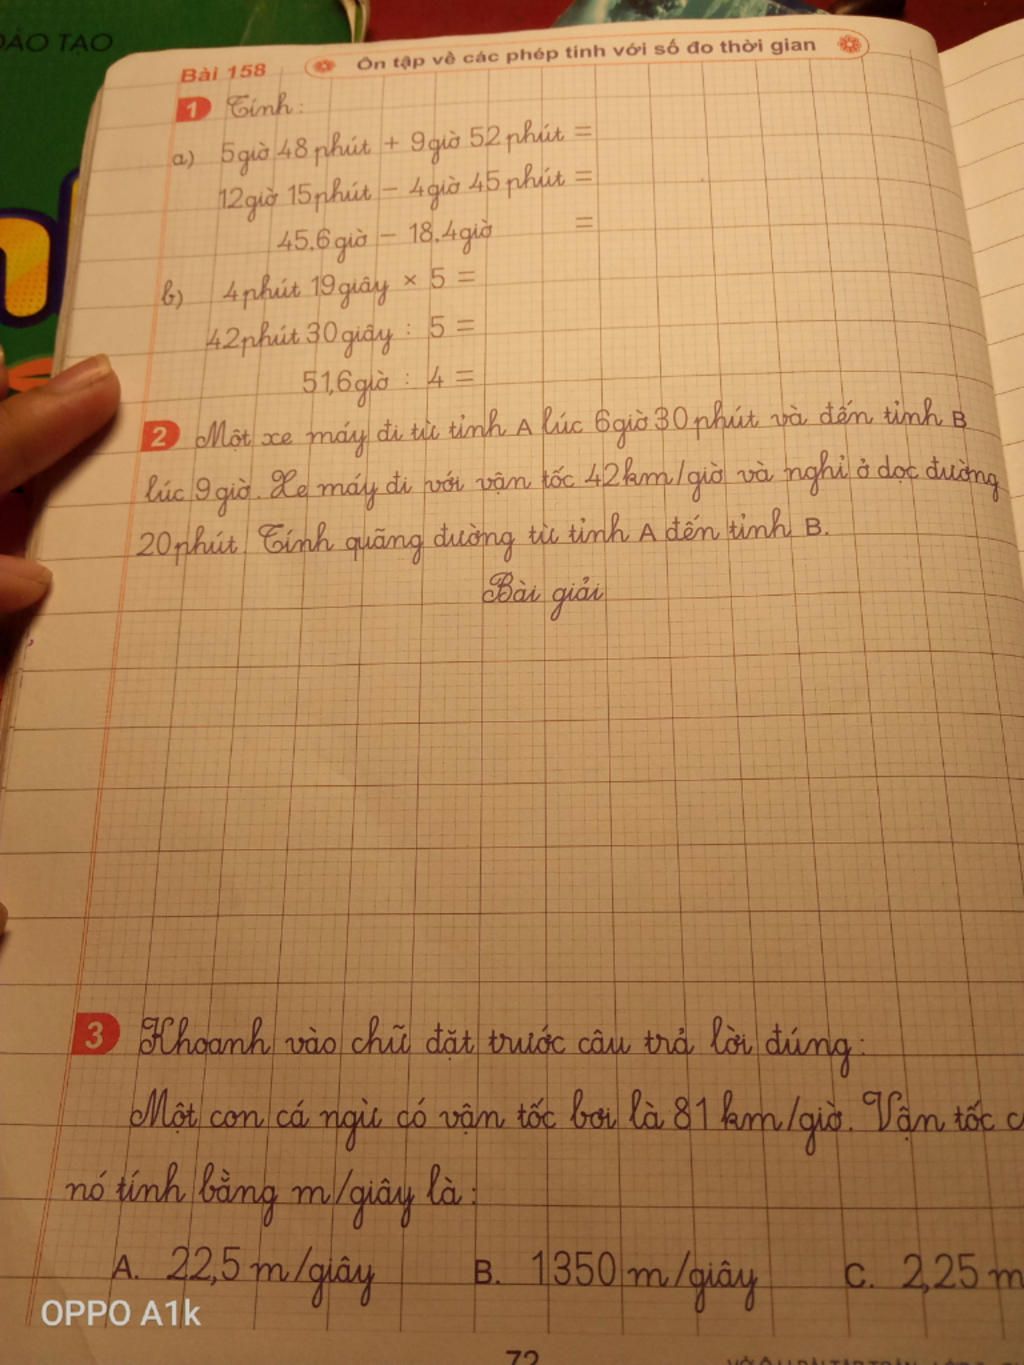 ĐÀO TẠO
Bài 158
Ôn tập về các phép tính với số đo thời gian
1 Tính:
a) 5 giờ 48 phút + 9 giờ 52 phút =
12 giờ 15 phút - 4 giờ 45 phút =
45,6 giờ - 18,4 giờ =
b) 4 phút 19 giây × 5 =
42 phút 30 giây : 5 =
51,6 giờ : 4 =
2 Một xe máy đi từ tỉnh A lúc 6 giờ 30 phút và đến tỉnh B
lúc 9 giờ. Xe máy đi với vận tốc 42 km/giờ và nghỉ ở dọc đường
20 phút. Tính quãng đường từ tỉnh A đến tỉnh B.
Bài giải
3 Khoanh vào chữ đặt trước câu trả lời đúng:
Một con cá ngừ có vận tốc bơi là 81 km/giờ. Vận tốc
nó tính bằng m/giây là:
A. 22,5 m/giây B. 1350 m/giây C. 2,25 m
OPPO A1k
72